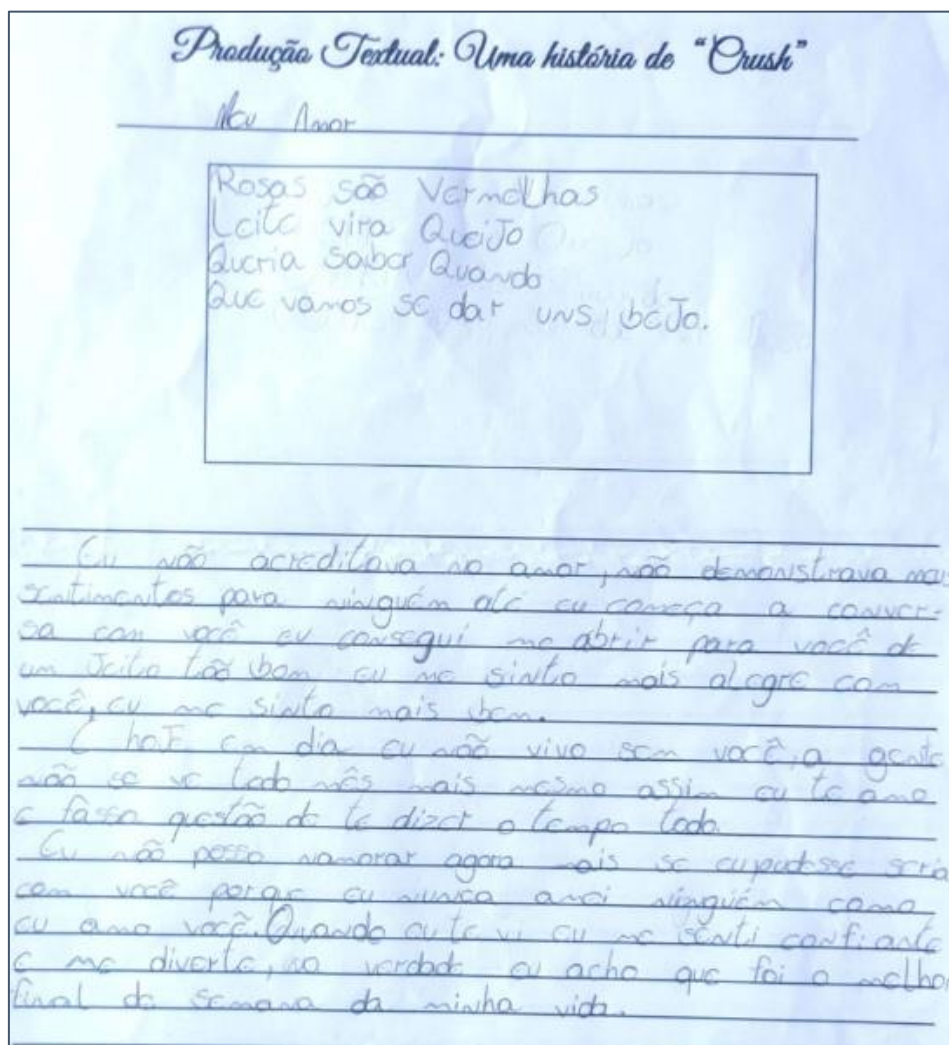 Produção Textual: Uma história de "Crush"
Meu Amor
Rosas são Vermelhas
Leite vira QueiJo
Queria Saber Quando
Que vamos se dar uns beJo.
Eu não acreditava no amor, não demonistrava meus
sentimentos para ninguém até eu começa a conver-
sa com você eu consegui me abrir para você de
um Jeito tão bom eu me sinto mais alegre com
você, eu me sinto mais bem.
E hoJe em dia eu não vivo sem você, a gente
não se ve todo mês mais mesmo assim eu te amo
e fasso questão de te dizer o tempo todo.
Eu não posso namorar agora mais se eu pudesse seria
com você porque eu nunca amei ninguém como
eu amo você. Quando eu te vi eu me senti confiante
e me diverte, na verdade eu acho que foi o melhor
final de semana da minha vida.